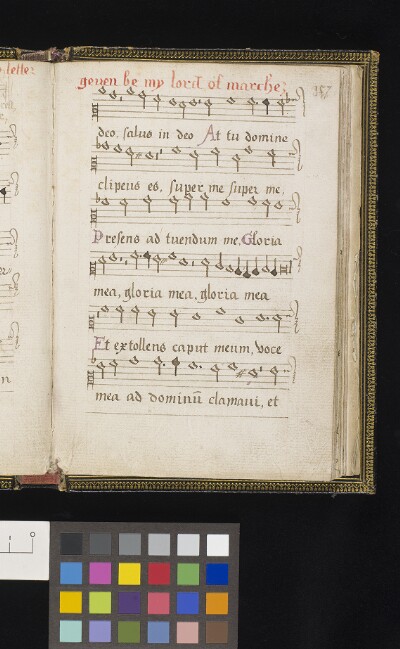 geuen be my lord of marche:
187
deo. salus in deo At tu domine
clipeus es, super me super me,
Presens ad tuendum me, Gloria
mea, gloria mea, gloria mea
Et extollens caput meum, voce
mea ad dominū clamaui, et